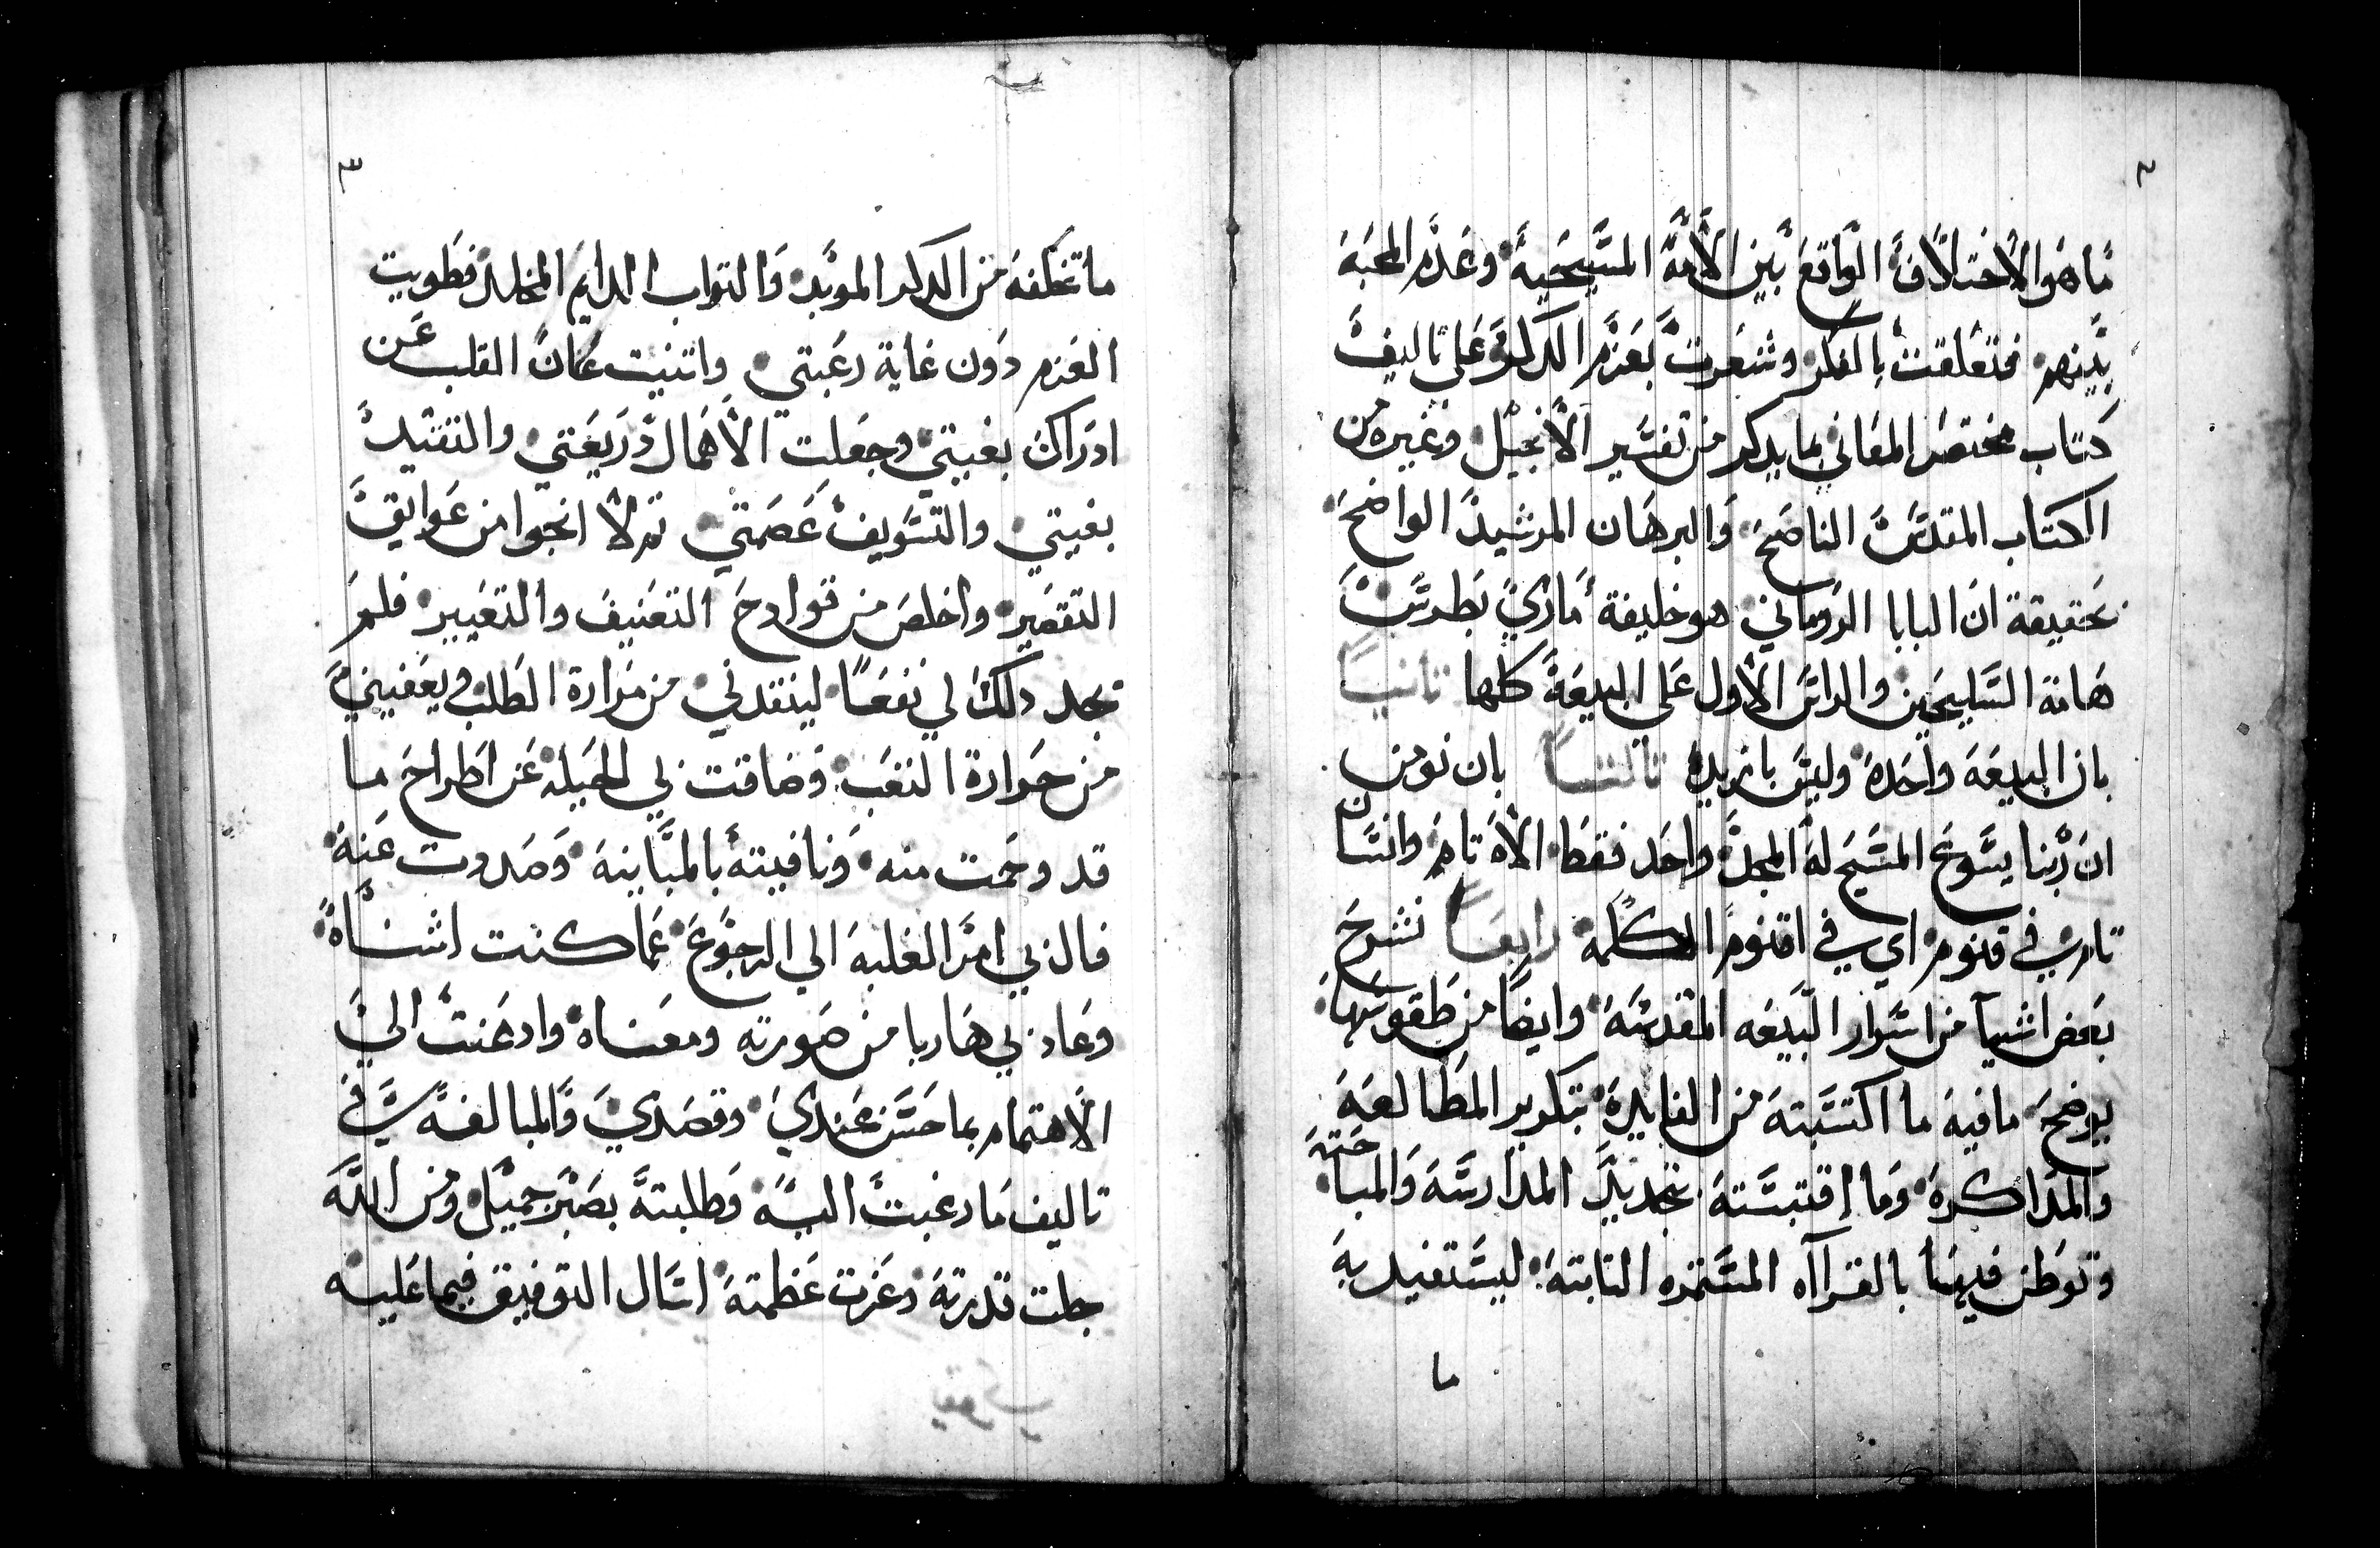 ٢
ما هو الاختلاف الواقع بين الأمة المسيحية وعدم المحبه
بينهم فتعلقت بالفكر وشعرت بعزم الدكر علي تاليف
كتاب مختصر المعاني بما يدكر من تفسير الأنجيل وغيره من
الكتاب المقدس الناصح والبرهان المرشيد الواضح
بحقيقة ان البابا الروماني هو خليفة ماري بطرس
هامة السليحين والراس الأول على البيعة كلها تانيا
بان البيعه واحده وليس بانزيد تالتا بان نومن
ان ربنا يسوع المسيح له المجد واحد فقط الاه تام وانسان
تام في قنوم اي في اقنوم الكلمة رابعا نشرح
بعض اشيا من اسرار البيعه المقدسه وايضا من طقوسها
يوضح مافيه ما اكتسبته من الفايدة بتكرير المطالعه
والمداكره وما اقتبسته بتجديد المدارسه والمباحته
وتوطن فيها بالقرااه المستمره التابته ليستفيد به
ما
٣
ما تخلفه من الدكر الموبد والتواب الدايم المخلد فطويت
العزم دون غاية رغبتي واتنيت عنان القلب عن
ادراك بغيتي وجعلت الأهمال دريعتي والتقتيل
بغيتي والتسويف عصمتي تم لا انجوا من عوايق
التقصير واخلص من قوادح التعنيف والتعيير فلم
يجد دلك لي نفعا لينقدني من مرارة الطلب ويعفيني
من حرارة التعب وضاقت بي الحيله عن اطراح ما
قد وحمت منه ونافيته بالمباينه وصدوت عنه
فال بي امر الغلبه الي الرجوع عما كنت اشناه
وعاد بي هاربا من صورته ومعناه وادعنت الي
الاهتمام بما حسن عندي وقصدي والمبالغه في
تاليف ما رغبت اليه وطلبته بصبر جميل ومن الله
جلت قدرته وعزت عظمته اسال التوفيق فيما عليه